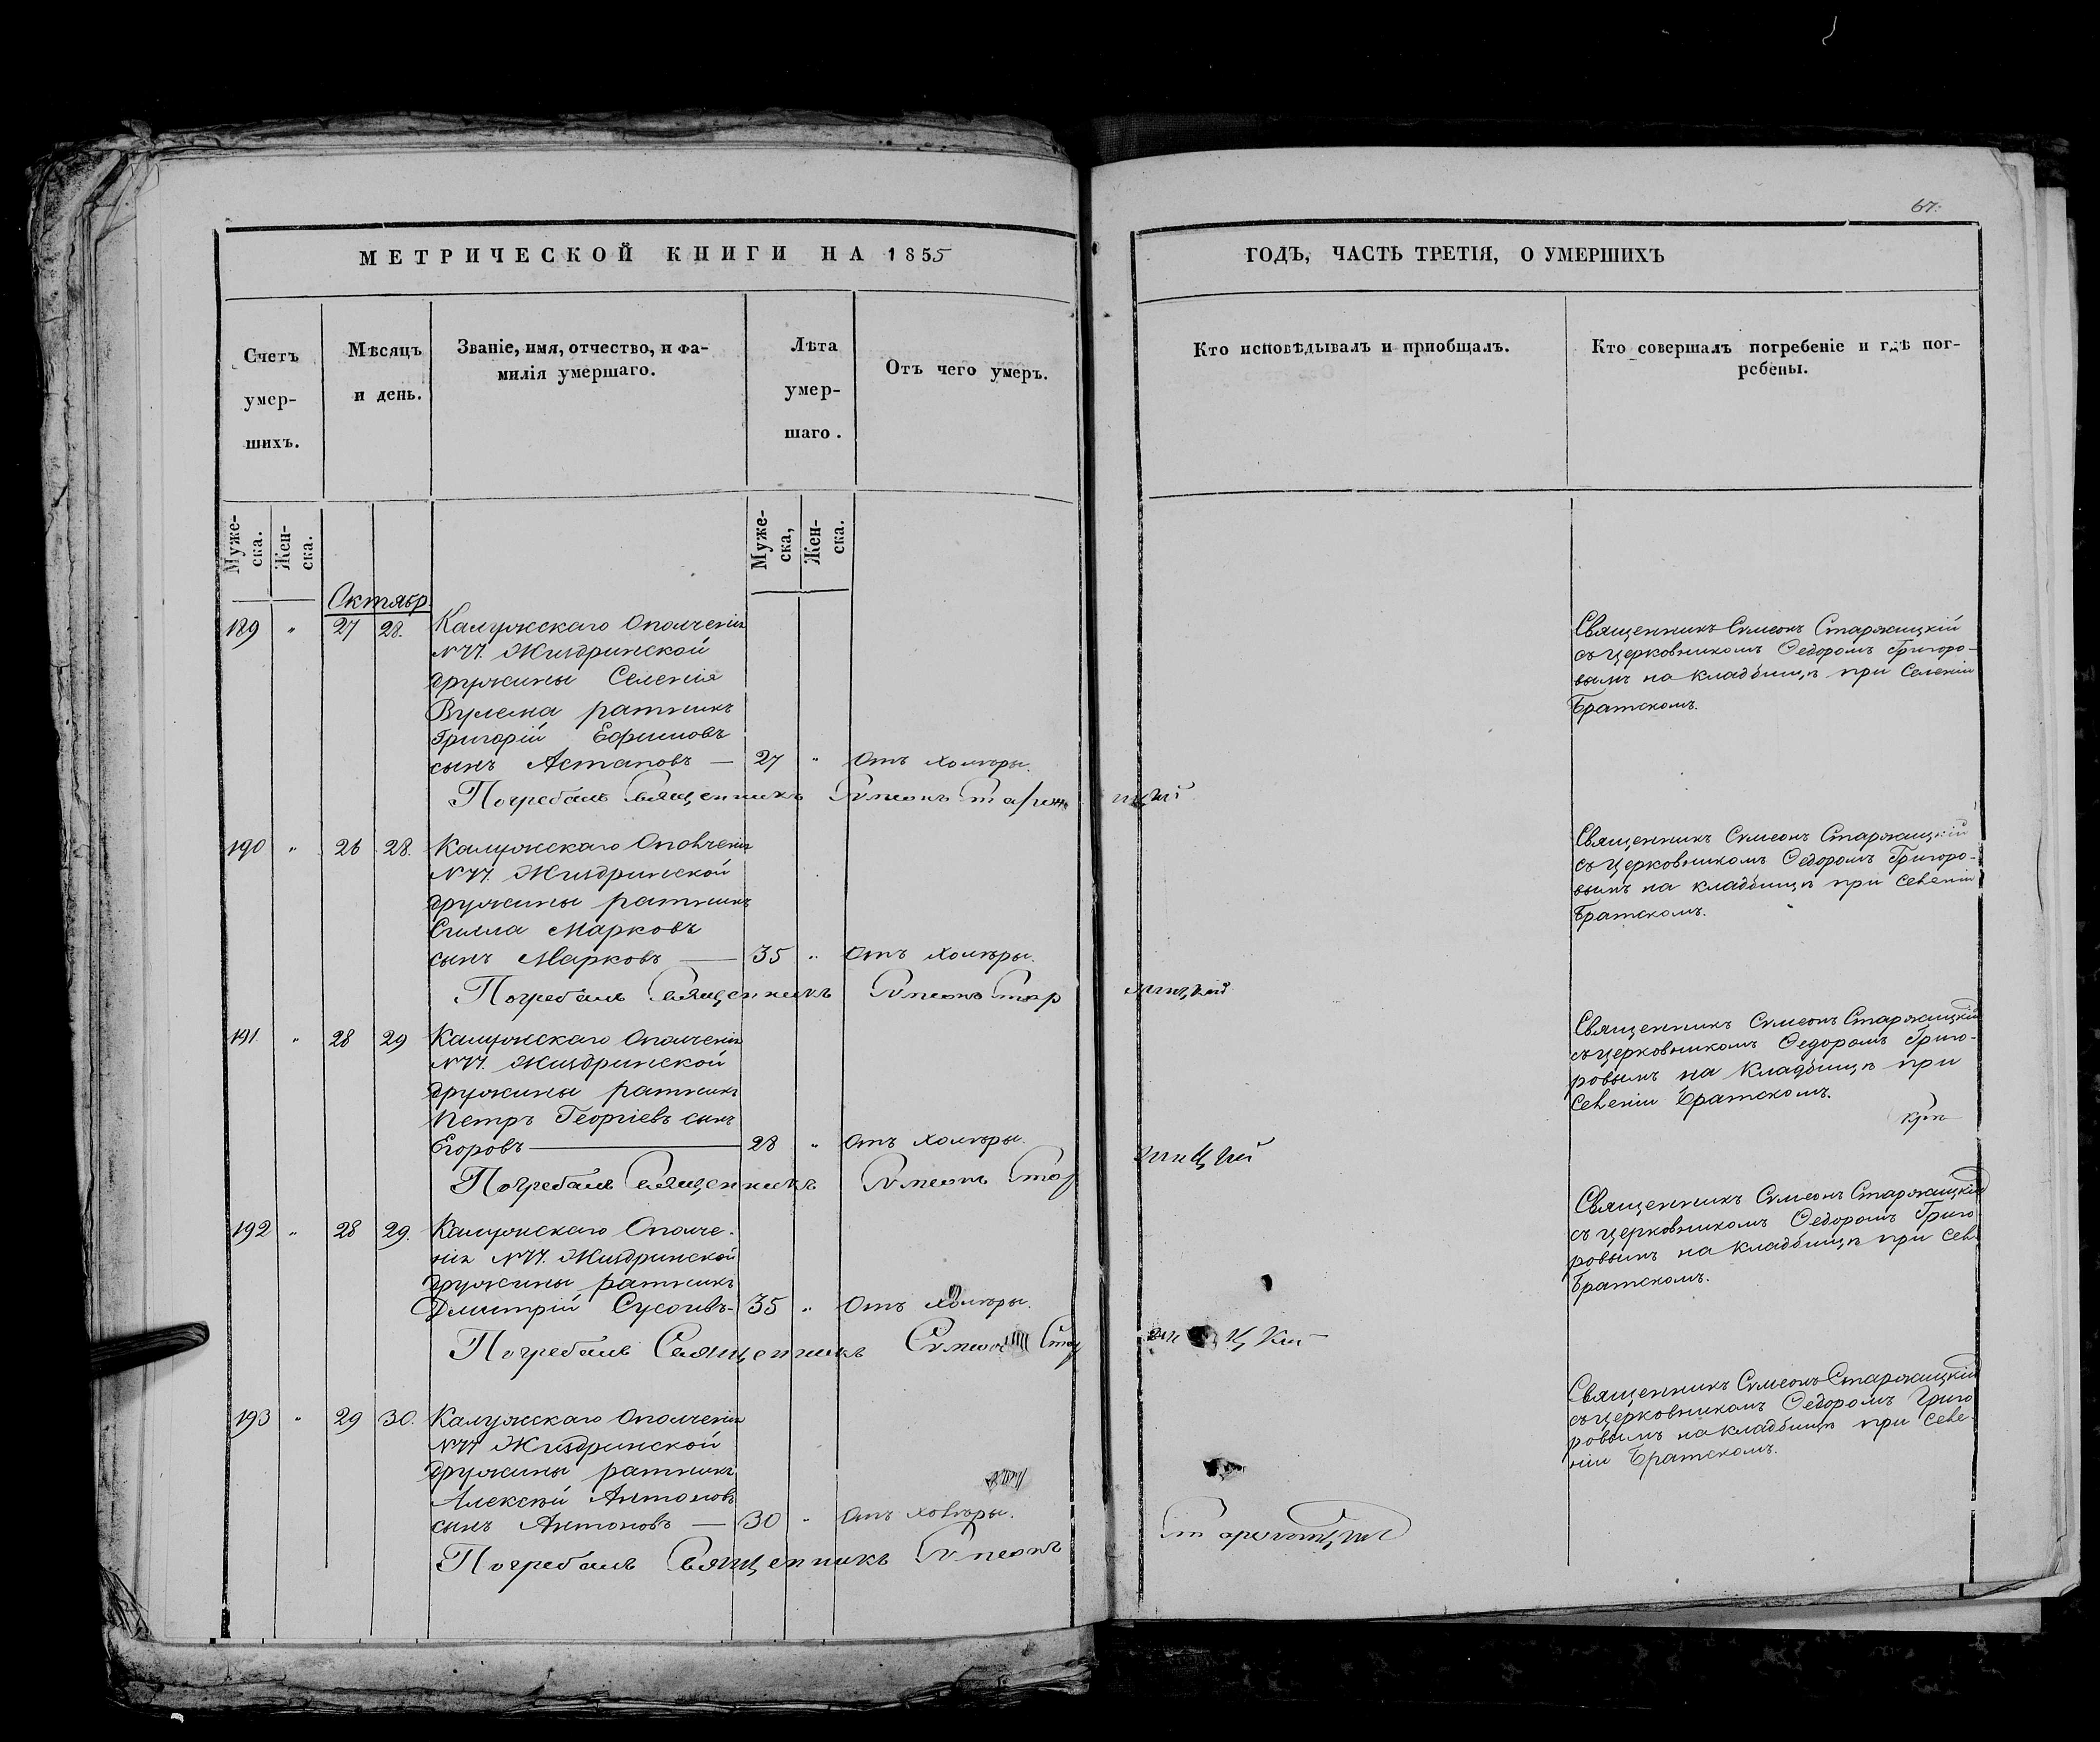 67.
МЕТРИЧЕСКОЙ КНИГИ НА 1855
ГОДЪ, ЧАСТЬ ТРЕТІЯ, О УМЕРШИХЪ
Счетъ умер-
шихъ.
Мѣсяцъ
и день.
Званіе, имя, отчество, и фа-
милія умершаго.
Лѣта
умер-
шаго.
Отъ чего умеръ.
Кто исповѣдывалъ и пріобщалъ.
Кто совершалъ погребеніе и гдѣ пог-
ребены.
Муже-
ска.
Жен-
ска.
Муже-
ска,
Жен-
ска.
Октябр.
189 " 27 28. Калужскаго Ополченія
№77. Жиздринской
дружины Селенія
ратникъ
Григорій Ефимовъ
сынъ Астаповъ — 27 " Отъ холеры.
Погребалъ Священникъ Сѵмеонъ Старжицкій
Священникъ Сѵмеонъ Старжицкій
съ церковникомъ Ѳедоромъ Григоро-
вымъ на кладбищѣ при Селеніи
Братскомъ.
190 " 26 28. Калужскаго Ополченія
№77. Жиздринской
дружины ратникъ
Марковъ
сынъ Марковъ — 35 " Отъ холеры.
Погребалъ Священникъ Сѵмеонъ Старжицкій
Священникъ Сѵмеонъ Старжицкій
съ церковникомъ Ѳедоромъ Григоро-
вымъ на кладбищѣ при Селеніи
Братскомъ.
191 " 28 29 Калужскаго Ополченія
№77. Жиздринской
дружины ратникъ
Петръ Георгіевъ сынъ
Егоровъ — 28 " Отъ холеры.
Погребалъ Священникъ Сѵмеонъ Старжицкій
Священникъ Сѵмеонъ Старжицкій
съ церковникомъ Ѳедоромъ Григо-
ровымъ на кладбищѣ при
Селеніи Братскомъ.
192 " 28 29. Калужскаго Ополче-
нія №77. Жиздринской
дружины ратникъ
Дмитрій 35 " Отъ холеры.
Погребалъ Священникъ Сѵмеонъ Старжицкій
Священникъ Сѵмеонъ Старжицкій
съ церковникомъ Ѳедоромъ Григо
ровымъ на кладбищѣ при Сел.
Братскомъ.
193 " 29 30. Калужскаго Ополченія
№77 Жиздринской
дружины ратникъ
Алексѣй Антоновъ
сынъ Антоновъ — 30 " Отъ холеры.
Погребалъ Священникъ Сѵмеонъ Старжицкій
Священникъ Сѵмеонъ Старжицкій
съ церковникомъ Ѳедоромъ Григо
ровымъ на кладбищѣ при Селе-
ніи Братскомъ.